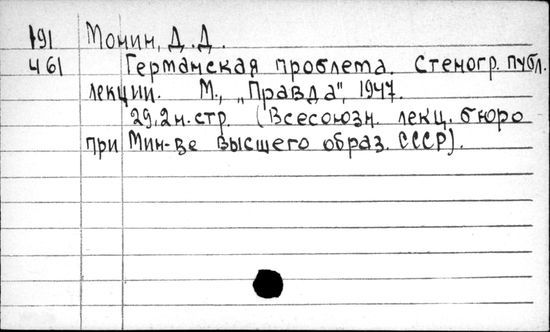 191 Монин, Д.Д.
461 Германская проблема. Стеногр. публ.
лекции. М., „Правда", 1947.
29,2н.стр. (Всесоюзн. лекц. бюро
при Мин-ве высшего образ. СССР).